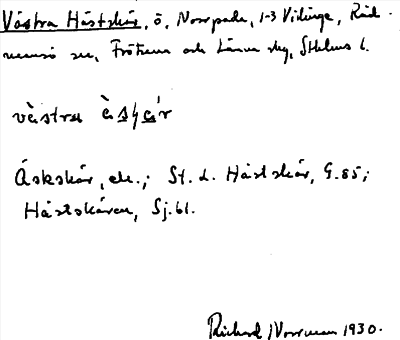 Västra Hästskär, ö, Norrpada, 1-3 Vidinge, Räd-
mansö sn, Frötuna och Länna skg, Sthlms l.
västra
Äskskär, ek.; St. L. Hästskär, G.85;
Hästskären, Sj.61.
Richard Norrman 1930.